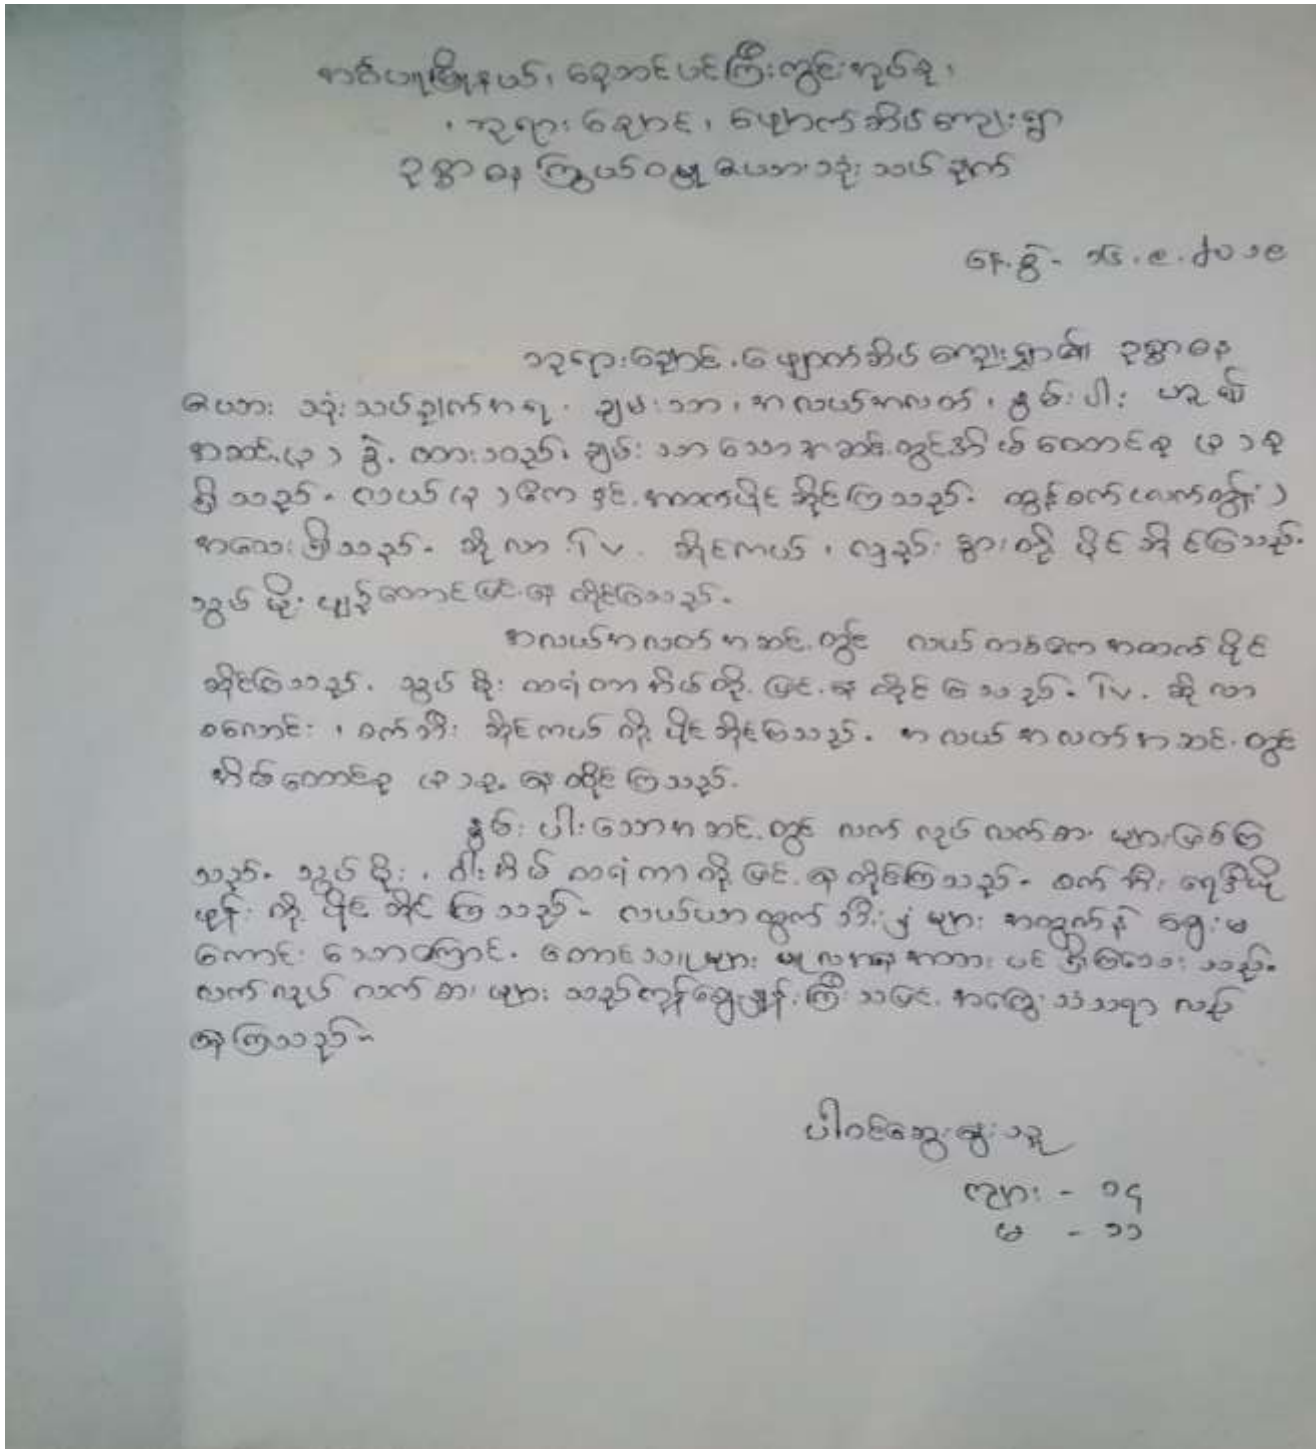 အင်းပုမြို့နယ်၊ ညောင်ပင်ကြီးကွင်းအုပ်စု၊
၊ ဘုရားချောင်၊ မျောက်ဆိပ်ကျေးရွာ
ဥစ္စာဓန ကြွယ်ဝမှု ဇယားသုံးသပ်ချက်
နေ့စွဲ - ၁၆.၉.၂၀၁၉
ဘုရားချောင်၊ မျောက်ဆိပ်ကျေးရွာ၏ ဥစ္စာဓန
ဇယား သုံးသပ်ချက်အရ၊ ချမ်းသာ၊ အလယ်အလတ်၊ နွမ်းပါး ဟူ၍
အဆင့် (၃) ခွဲ ထားသည်၊ ချမ်းသာသောအဆင့်တွင်အိမ်ထောင်စု (၃) စု
ရှိသည်။ လယ် (၃) ဧကနှင့် အထက်ပိုင်ဆိုင်ကြသည်။ ထွန်စက် (လက်တွန်း)
အသေးရှိသည်။ ဆိုလာ၊ TV၊ ဆိုင်ကယ်၊ လှည်း နွားတို့ ပိုင်ဆိုင်ကြသည်။
သွပ်မိုး ပျဉ်ထောင်ဖြင့်နေထိုင်ကြသည်။
အလယ်အလတ်အဆင့်တွင် လယ်တစ်ဧကအထက်ပိုင်
ဆိုင်ကြသည်။ သွပ်မိုး ထရံကာအိမ်တို့ဖြင့်နေထိုင်ကြသည်။ TV၊ ဆိုလာ
စလောင်း၊ စက်ဘီး ဆိုင်ကယ်တို့ ပိုင်ဆိုင်ကြသည်။ အလယ်အလတ်အဆင့်တွင်
အိမ်ထောင်စု (၃) စု နေထိုင်ကြသည်။
နွမ်းပါးသောအဆင့်တွင် လက်လုပ်လက်စားများဖြစ်ကြ
သည်။ သွပ်မိုး၊ ဝါးအိမ် ထရံကာတို့ဖြင့်နေထိုင်ကြသည်။ စက်ဘီး ရေဒီယို
ဖုန်းတို့ ပိုင်ဆိုင်ကြသည်။ လယ်ယာထွက်သီးနှံများ အထွက်နှင့် ဈေးမ
ကောင်းသောကြောင့်၊ တောင်သူများ မူလအနေအထား ပင်ရှိကြသေးသည်။
လက်လုပ်လက်စားများသည်ကုန်ဈေးနှုန်းကြီးသဖြင့် အကြွေးသံသရာ လည်
နေကြသည်။
ပါဝင်ဆွေးနွေးသူ
ကျား - ၁၄
မ - ၁၁